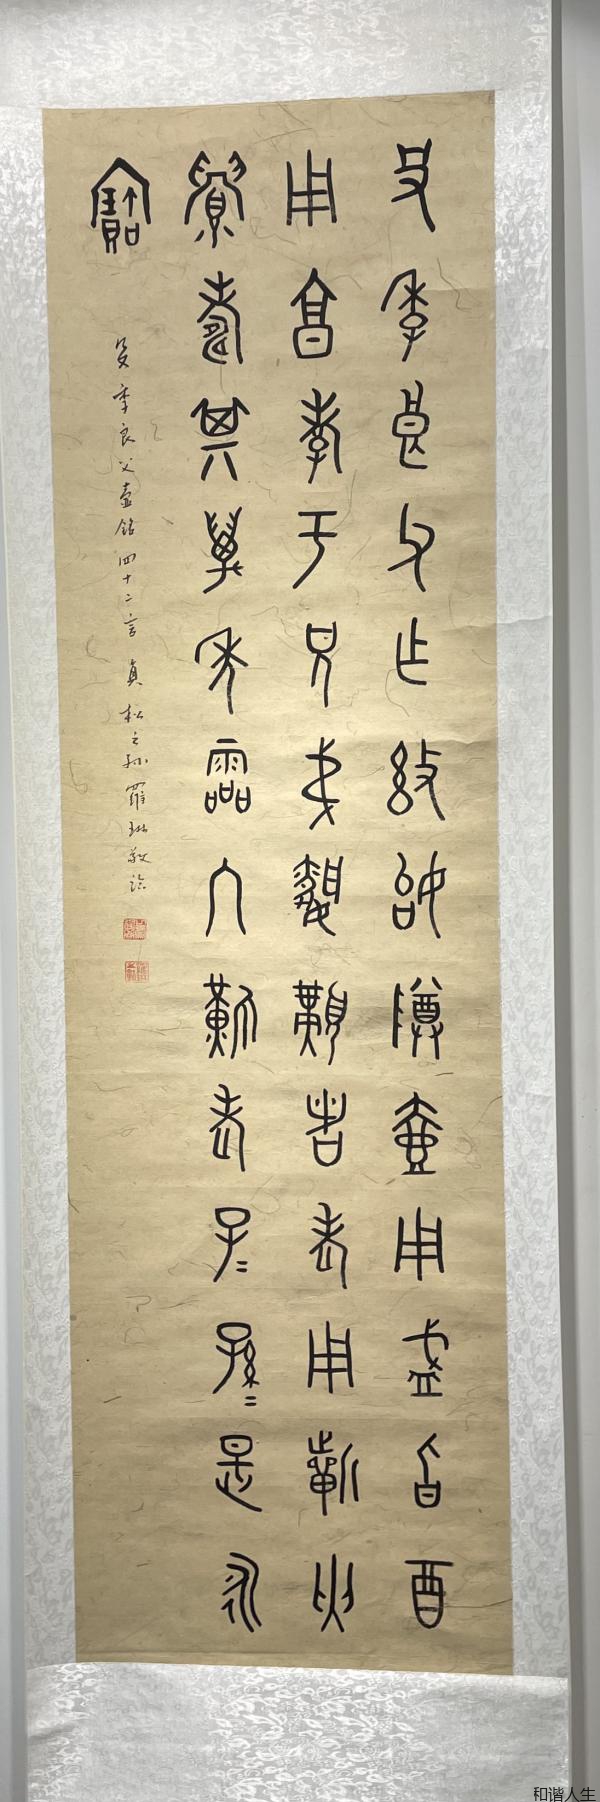 殳季良父乍姒尊壺用盛旨酉
用享孝于兄弟婚媾者老用祈匄
眉壽其萬年霝冬難老子=孫=是永
寶
殳季良父壺銘四十二言 貞松之孫羅琳敬臨
和谐人生